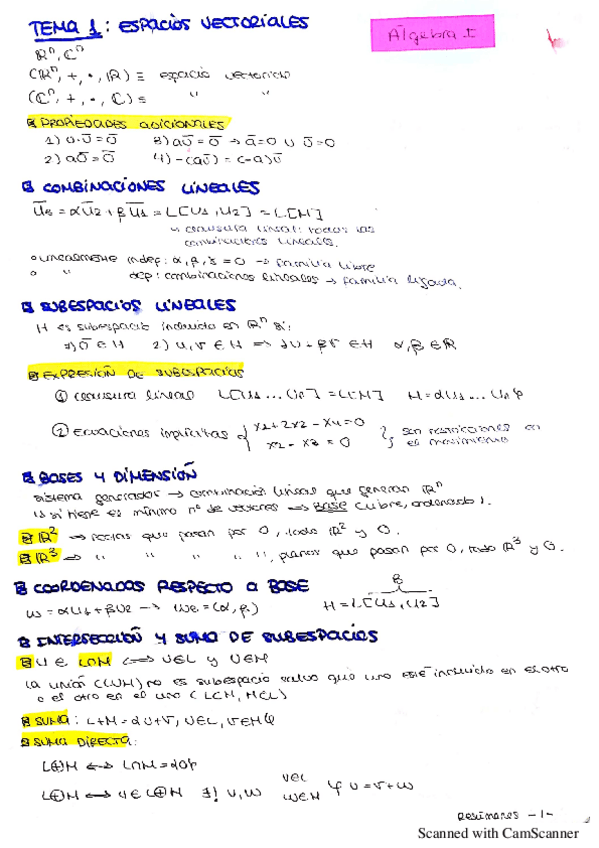 TEMA 1: ESPACIOS VECTORIALES
Álgebra I
ℝⁿ, ℂⁿ
(ℝⁿ, +, ·, ℝ) ≡ espacio vectorial
(ℂⁿ, +, ·, ℂ) ≡ " "
PROPIEDADES ADICIONALES
1) 0·ū = ō 3) aū = ō → ā = 0 ∪ ū = 0
2) aō = ō 4) -(aū) = (-a)ū
COMBINACIONES LINEALES
= αū2 + βū1 = L[U1, U2] = L[M]
↳ clausura lineal: todas las
combinaciones lineales.
linealmente indep: α, β, γ = 0 → familia libre
" dep: combinaciones lineales → familia ligada.
SUBESPACIOS LINEALES
H es subespacio incluido en ℝⁿ si:
1) ō ∈ H 2) u, v ∈ H ⇒ αu + βv ∈ H α, β ∈ ℝ
EXPRESIÓN DE SUBESPACIOS
① clausura lineal L[U1 ... Un] = L[M] H = αU1 ... Un
② Ecuaciones implícitas { x1 + 2x2 - x4 = 0
x2 - x3 = 0 } son restricciones en
el movimiento
BASES Y DIMENSIÓN
sistema generador → combinación lineal que generan ℝⁿ
↳ si tiene el mínimo nº de vectores → Base (libre, ordenado).
ℝ² → rectas que pasan por 0, todo ℝ² y 0.
ℝ³ → " " " " ", planos que pasan por 0, todo ℝ³ y 0.
COORDENADAS RESPECTO A BASE
B
u = αu1 + βu2 → = (α, β) H = L[U1, U2]
INTERSECCIÓN Y SUMA DE SUBESPACIOS
U ∈ L∩M ⟺ U∈L y U∈M
La unión (L∪M) no es subespacio salvo que uno esté incluido en el otro
o el otro en el uno (L⊂M, M⊂L)
SUMA: L+M = {U+V, U∈L, V∈M}
SUMA DIRECTA:
L⊕M ⟷ L∩M = {0}
L⊕M ⟷ U∈L⊕M ∃! V, W V∈L
W∈M } U = V+W
Resúmenes -1-
Scanned with CamScanner